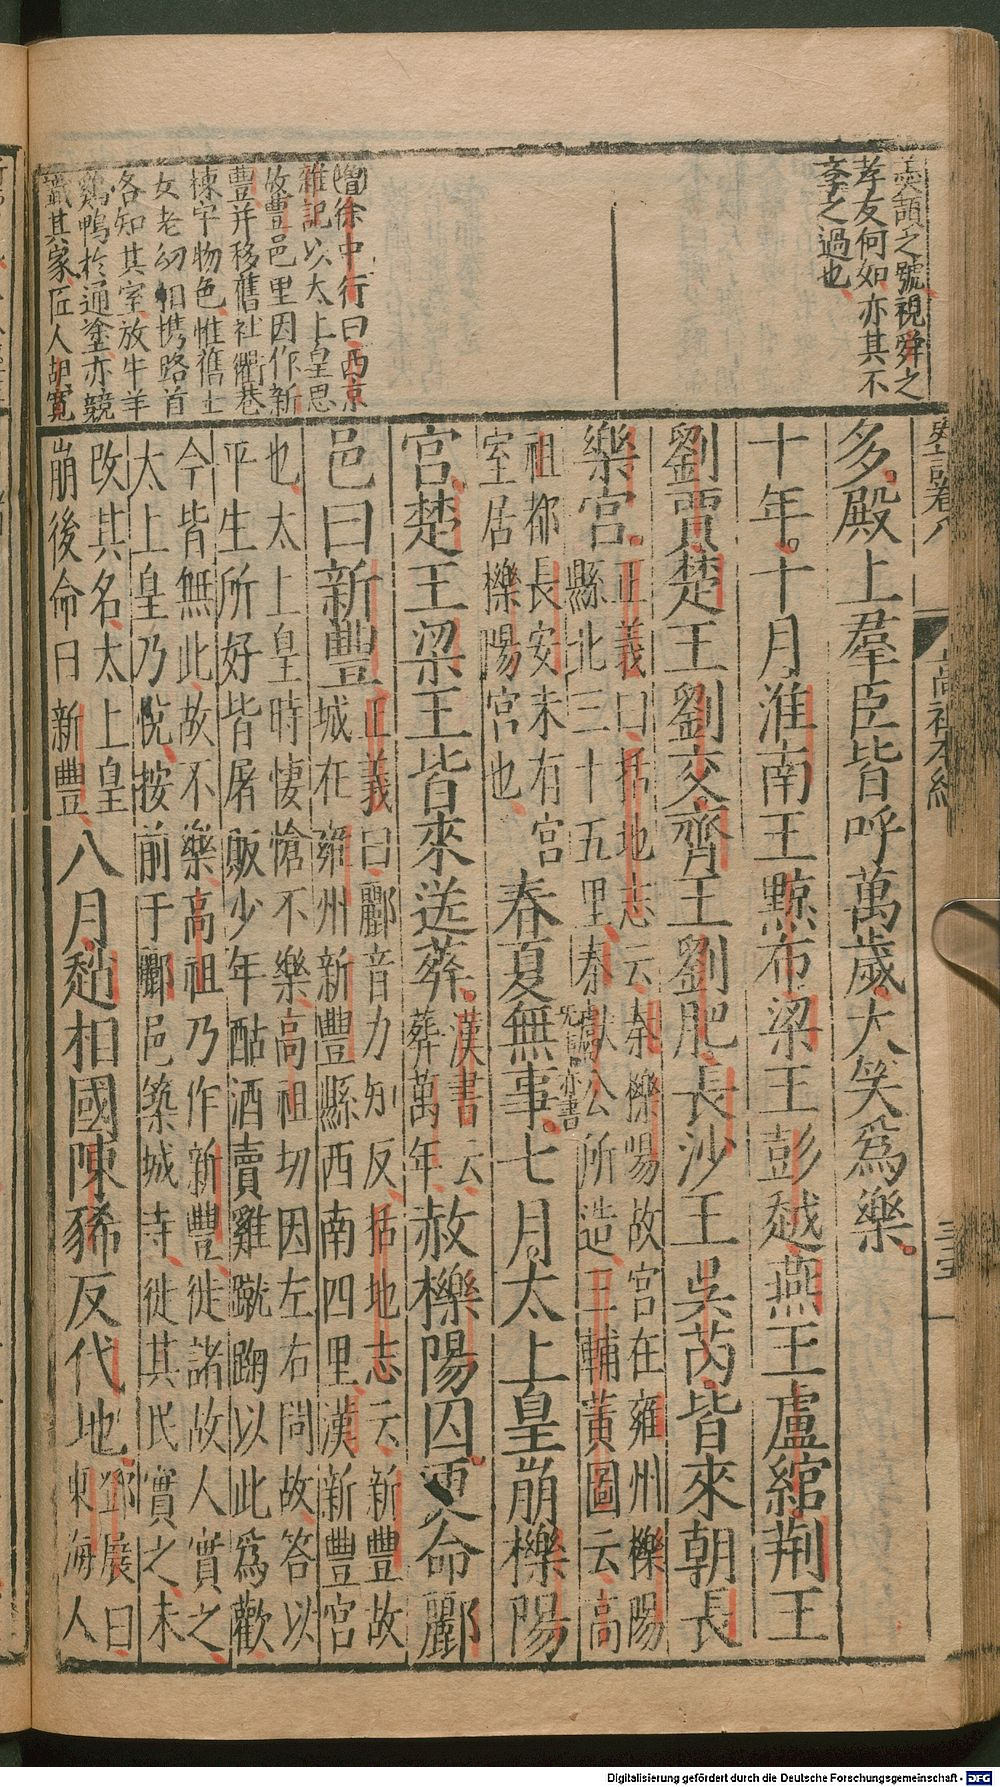 叟頡之號視舜之
孝友何如亦其不
孝之過也
增徐中行曰西京
雜記以太上皇思
故豐邑里因作新
豐并移舊社衢巷
棟宇物色惟舊士
女老幼相携路首
各知其室放牛羊
鷄鴨於通塗亦競
識其家匠人胡寬
史記卷八
高祖本紀
三五
多殿上羣臣皆呼萬歲大笑爲樂
十年十月淮南王黥布梁王彭越燕王盧綰荆王
劉賈楚王劉交齊王劉肥長沙王吳芮皆來朝長
樂宮正義曰括地志云秦櫟陽故宮在雍州櫟陽
縣北三十五里秦獻公所造三輔黃圖云高
祖都長安未有宮
室居櫟陽宮也春夏無事七月太上皇崩櫟陽
宮楚王梁王皆來送葬漢書云
葬萬年赦櫟陽囚更命酈
邑曰新豐正義曰酈音力知反括地志云新豐故
城在雍州新豐縣西南四里漢新豐宮
也太上皇時悽愴不樂高祖切因左右問故荅以
平生所好皆屠販少年酤酒賣雞蹴踘以此爲歡
今皆無此故不樂高祖乃作新豐徙諸故人實之
太上皇乃悅按前于酈邑築城寺徙其民實之未
改其名太上皇
崩後命曰新豐八月趙相國陳豨反代地鄧展曰
東海人
Digitalisierung gefördert durch die Deutsche Forschungsgemeinschaft - DFG